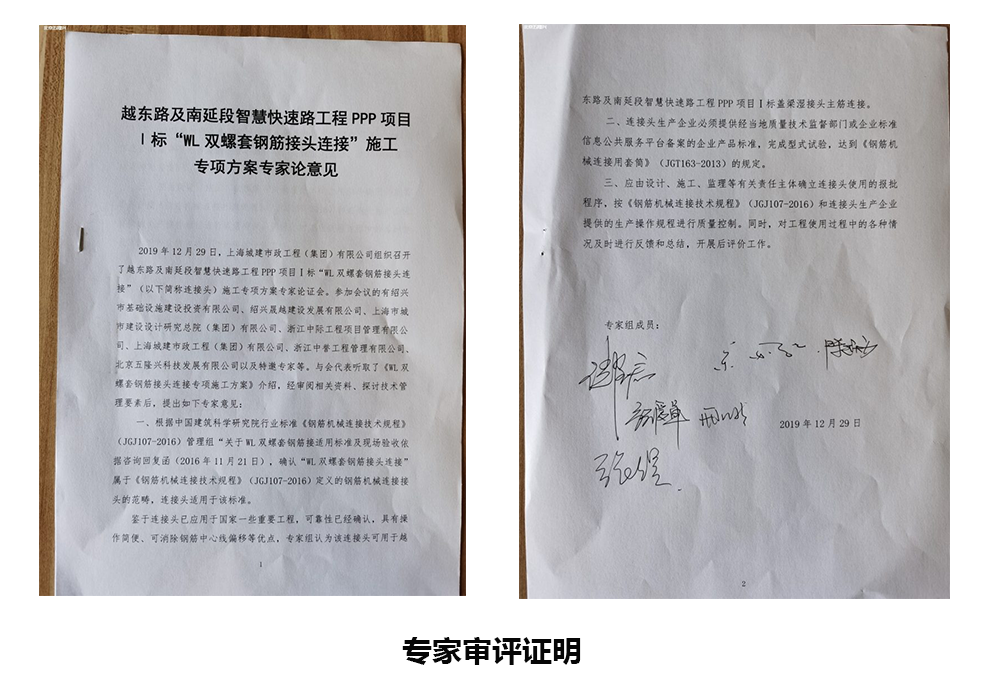 越东路及南延段智慧快速路工程 PPP 项目
Ⅰ标“WL 双螺套钢筋接头连接”施工
专项方案专家论意见
2019 年 12 月 29 日，上海城建市政工程（集团）有限公司组织召开
了越东路及南延段智慧快速路工程 PPP 项目Ⅰ标“WL 双螺套钢筋接头连
接”（以下简称连接头）施工专项方案专家论证会。参加会议的有绍兴
市基础设施建设投资有限公司、绍兴晟越建设发展有限公司、上海市城
市建设设计研究总院（集团）有限公司、浙江中际工程项目管理有限公
司、上海城建市政工程（集团）有限公司、浙江中誉工程管理有限公司、
北京五隆兴科技发展有限公司以及特邀专家等。与会代表听取了《WL 双
螺套钢筋接头连接专项施工方案》介绍，经审阅相关资料、探讨技术管
理要素后，提出如下专家意见：
一、根据中国建筑科学研究院行业标准《钢筋机械连接技术规程》
（JGJ107-2016）管理组“关于 WL 双螺套钢筋接适用标准及现场验收依
据咨询回复函（2016 年 11 月 21 日），确认“WL 双螺套钢筋接头连接”
属于《钢筋机械连接技术规程》（JGJ107-2016）定义的钢筋机械连接接
头的范畴，连接头适用于该标准。
鉴于连接头已应用于国家一些重要工程，可靠性已经确认，具有操
作简便、可消除钢筋中心线偏移等优点，专家组认为该连接头可用于越
1
东路及南延段智慧快速路工程 PPP 项目Ⅰ标盖梁湿接头主筋连接。
二、连接头生产企业必须提供经当地质量技术监督部门或企业标准
信息公共服务平台备案的企业产品标准，完成型式试验，达到《钢筋机
械连接用套筒》（JGT163-2013）的规定。
三、应由设计、施工、监理等有关责任主体确立连接头使用的报批
程序，按《钢筋机械连接技术规程》（JGJ107-2016）和连接头生产企业
提供的生产操作规程进行质量控制。同时，对工程使用过程中的各种情
况及时进行反馈和总结，开展后评价工作。
专家组成员：
2019 年 12 月 29 日
2
专家审评证明